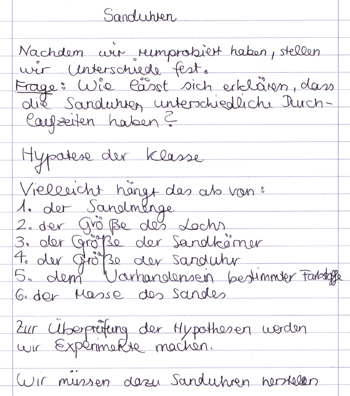 Sanduhren
Nachdem wir rumprobiert haben, stellen
wir Unterschiede fest.
Frage: Wie lässt sich erklären, dass
die Sanduhren unterschiedliche Durch-
laufzeiten haben?
Hypotese der Klasse
Vielleicht hängt das ab von:
1. der Sandmenge
2. der Größe des Lochs
3. der Größe der Sandkörner
4. der Größe der Sanduhr
5. dem Vorhandensein bestimmter Farbstoffe
6. der Masse des Sandes
Zur Überprüfung der Hypothesen werden
wir Experimente machen.
Wir müssen dazu Sanduhren herstellen